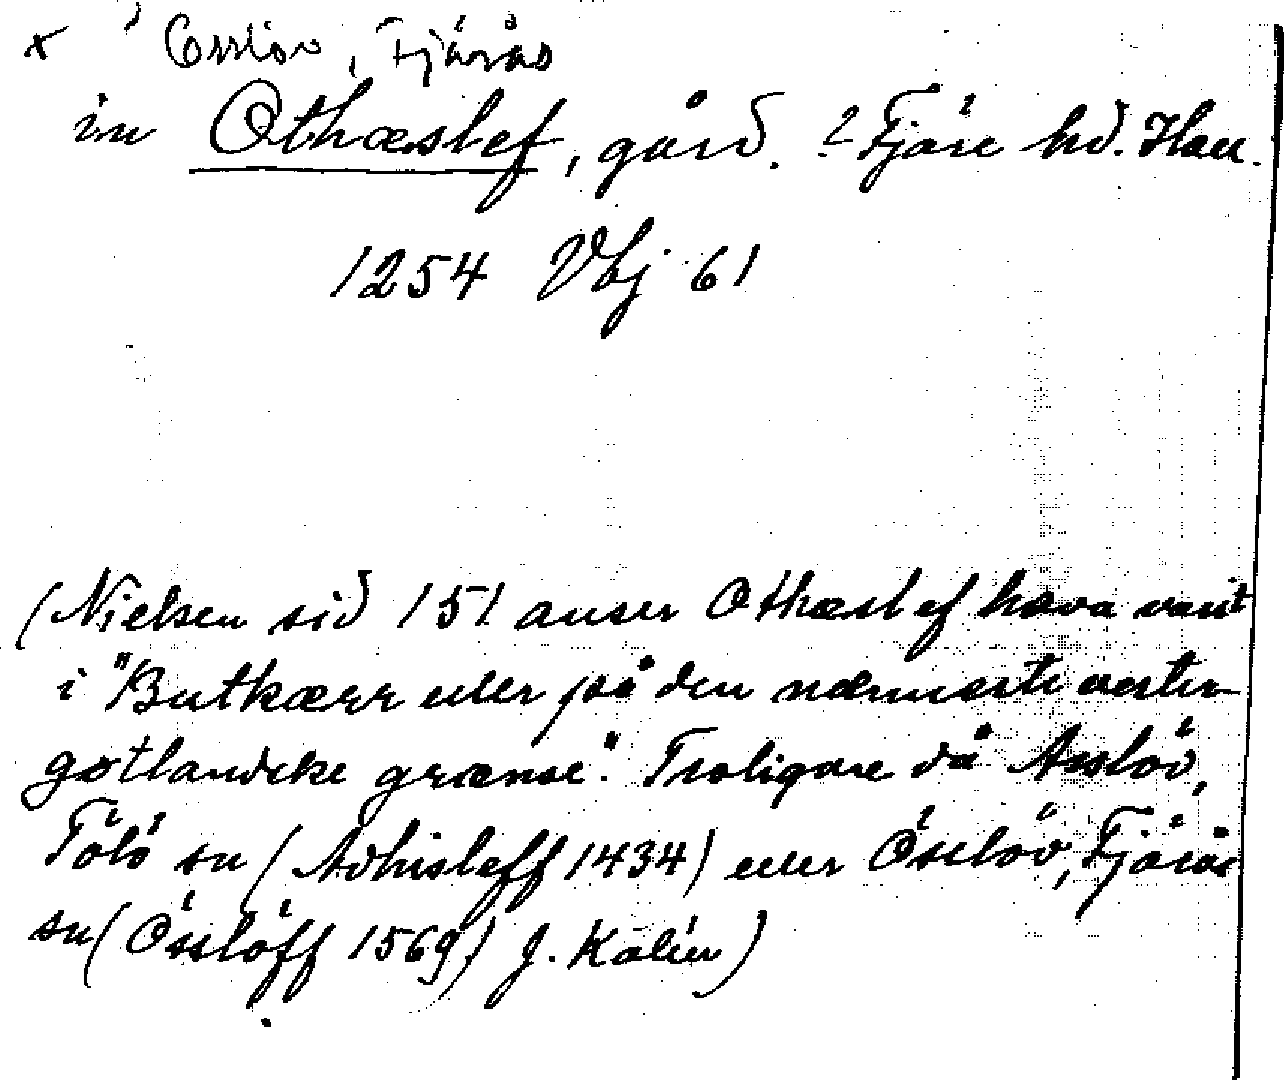 x Össlöv, Fjärås
in Othæslef, gård. ? Fjäre hd. Hall.
1254 Vbj 61
(Nielsen sid 151 anser Othæslef hava varit
i "Butkærr eller på den nærmeste vester-
gøtlandske grænse". Troligare då Asslöv,
Tölö sn (Adhisleff 1434) eller Össlöv, Fjärås
sn (Össlöff 1569) J. Kalén)